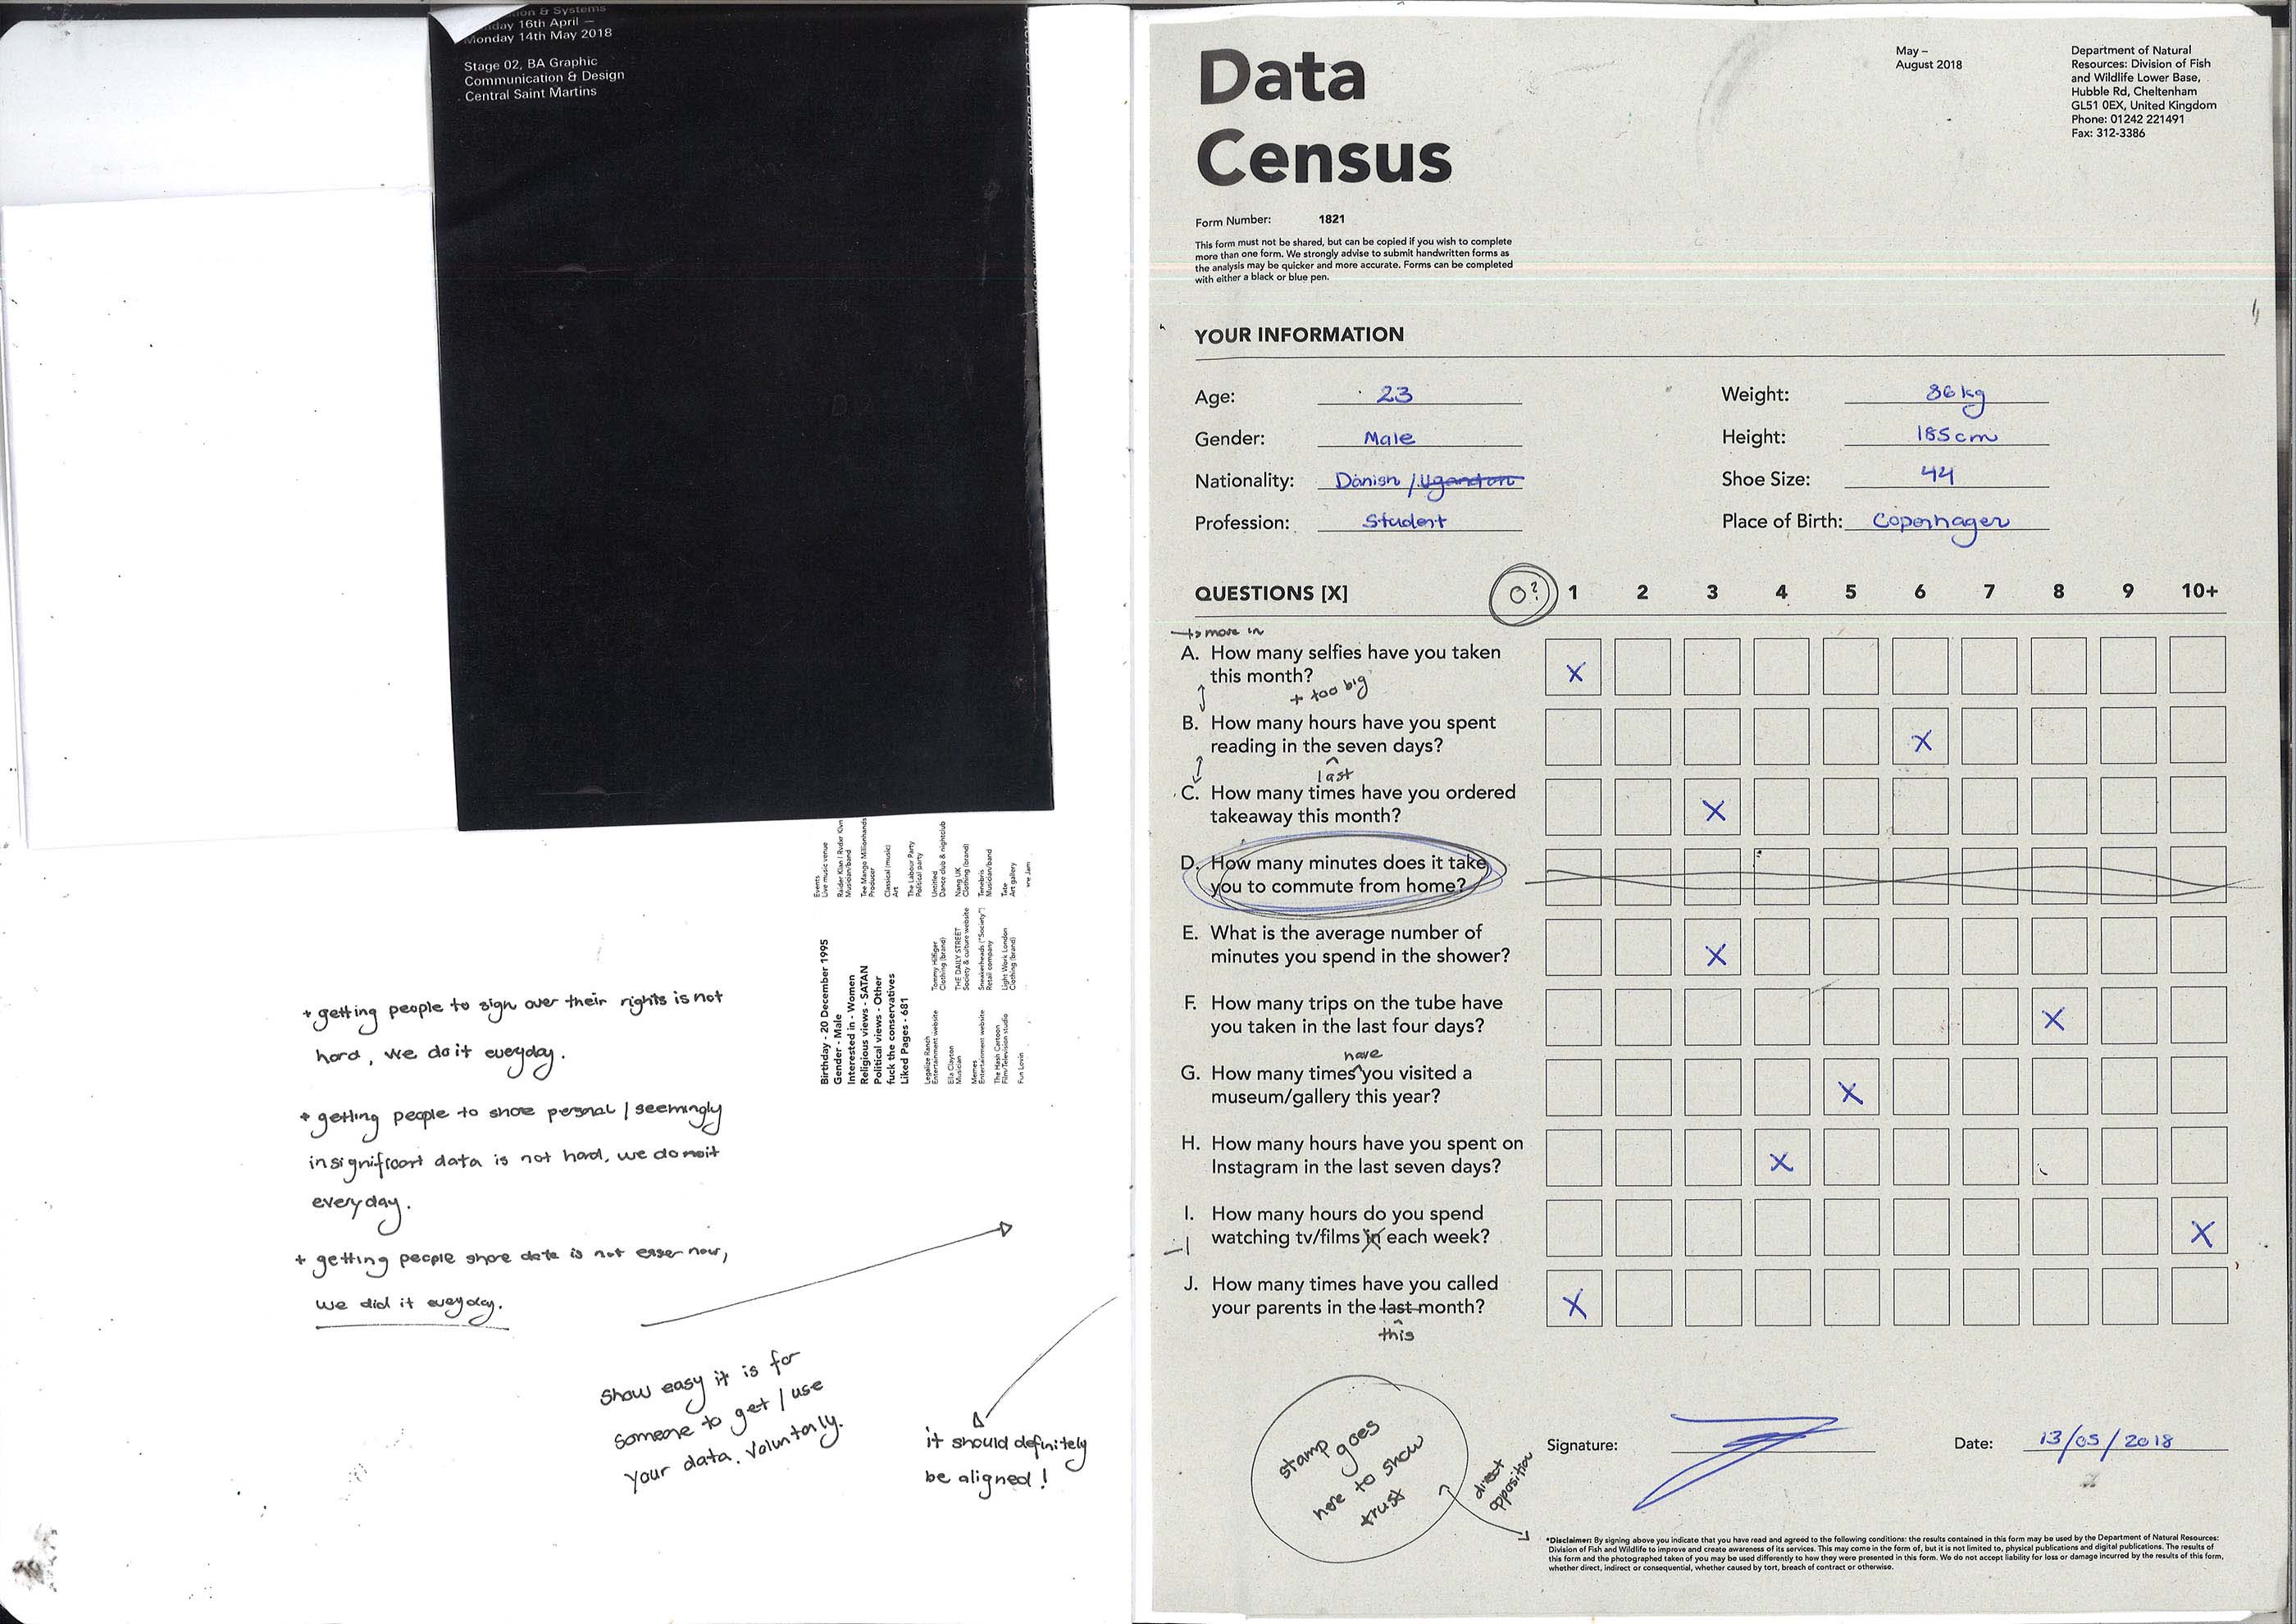 day 16th April –
Monday 14th May 2018
Stage 02, BA Graphic
Communication & Design
Central Saint Martins
Events
Live music venue
Musician/band
Tee Mango Millionhands
Producer
Classical (music)
Art
The Labour Party
Political party
Untitled
Dance club & nightclub
Nang UK
Clothing (brand)
Tenebris
Musician/band
Tate
Art gallery
Birthday - 20 December 1995
Gender - Male
Interested in - Women
Religious views - SATAN
Political views - Other
fuck the conservatives
Liked Pages - 681
Tommy Hilfiger
Clothing (brand)
THE DAILY STREET
Society & culture website
Sneakerheads ("Society")
Retail company
Light Work London
Clothing (brand)
Legalize Ranch
Entertainment website
Ella Clayton
Musician
Memes
Entertainment website
The Hash Cartoon
Film/Television studio
Fun Lovin
+ getting people to sign over their rights is not
hard, we do it everyday.
+ getting people to share personal / seemingly
insignificant data is not hard, we do it
everyday.
+ getting people share data is not easer now,
we did it everyday.
show easy it is for
someone to get / use
your data. voluntarly.
it should definitely
be aligned!
Data
Census
May –
August 2018
Department of Natural
Resources: Division of Fish
and Wildlife Lower Base,
Hubble Rd, Cheltenham
GL51 0EX, United Kingdom
Phone: 01242 221491
Fax: 312-3386
Form Number: 1821
This form must not be shared, but can be copied if you wish to complete
more than one form. We strongly advise to submit handwritten forms as
the analysis may be quicker and more accurate. Forms can be completed
with either a black or blue pen.
YOUR INFORMATION
Age: 23
Weight: 86 kg
Gender: Male
Height: 185cm
Nationality: Danish / Ugandan
Shoe Size: 44
Profession: Student
Place of Birth: Copenhagen
QUESTIONS [X] 0? 1 2 3 4 5 6 7 8 9 10+
→ move in
A. How many selfies have you taken
this month? X
+ too big
B. How many hours have you spent
reading in the seven days? X
last
C. How many times have you ordered
takeaway this month? X
D. How many minutes does it take
you to commute from home?
E. What is the average number of
minutes you spend in the shower? X
F. How many trips on the tube have
you taken in the last four days? X
have
G. How many times you visited a
museum/gallery this year? X
H. How many hours have you spent on
Instagram in the last seven days? X
I. How many hours do you spend
watching tv/films in each week? X
J. How many times have you called
your parents in the last month? X
this
stamp goes
here to show
trust
direct
opposition
Signature:
Date: 13/05/2018
*Disclaimer: By signing above you indicate that you have read and agreed to the following conditions: the results contained in this form may be used by the Department of Natural Resources:
Division of Fish and Wildlife to improve and create awareness of its services. This may come in the form of, but it is not limited to, physical publications and digital publications. The results of
this form and the photographed taken of you may be used differently to how they were presented in this form. We do not accept liability for loss or damage incurred by the results of this form,
whether direct, indirect or consequential, whether caused by tort, breach of contract or otherwise.